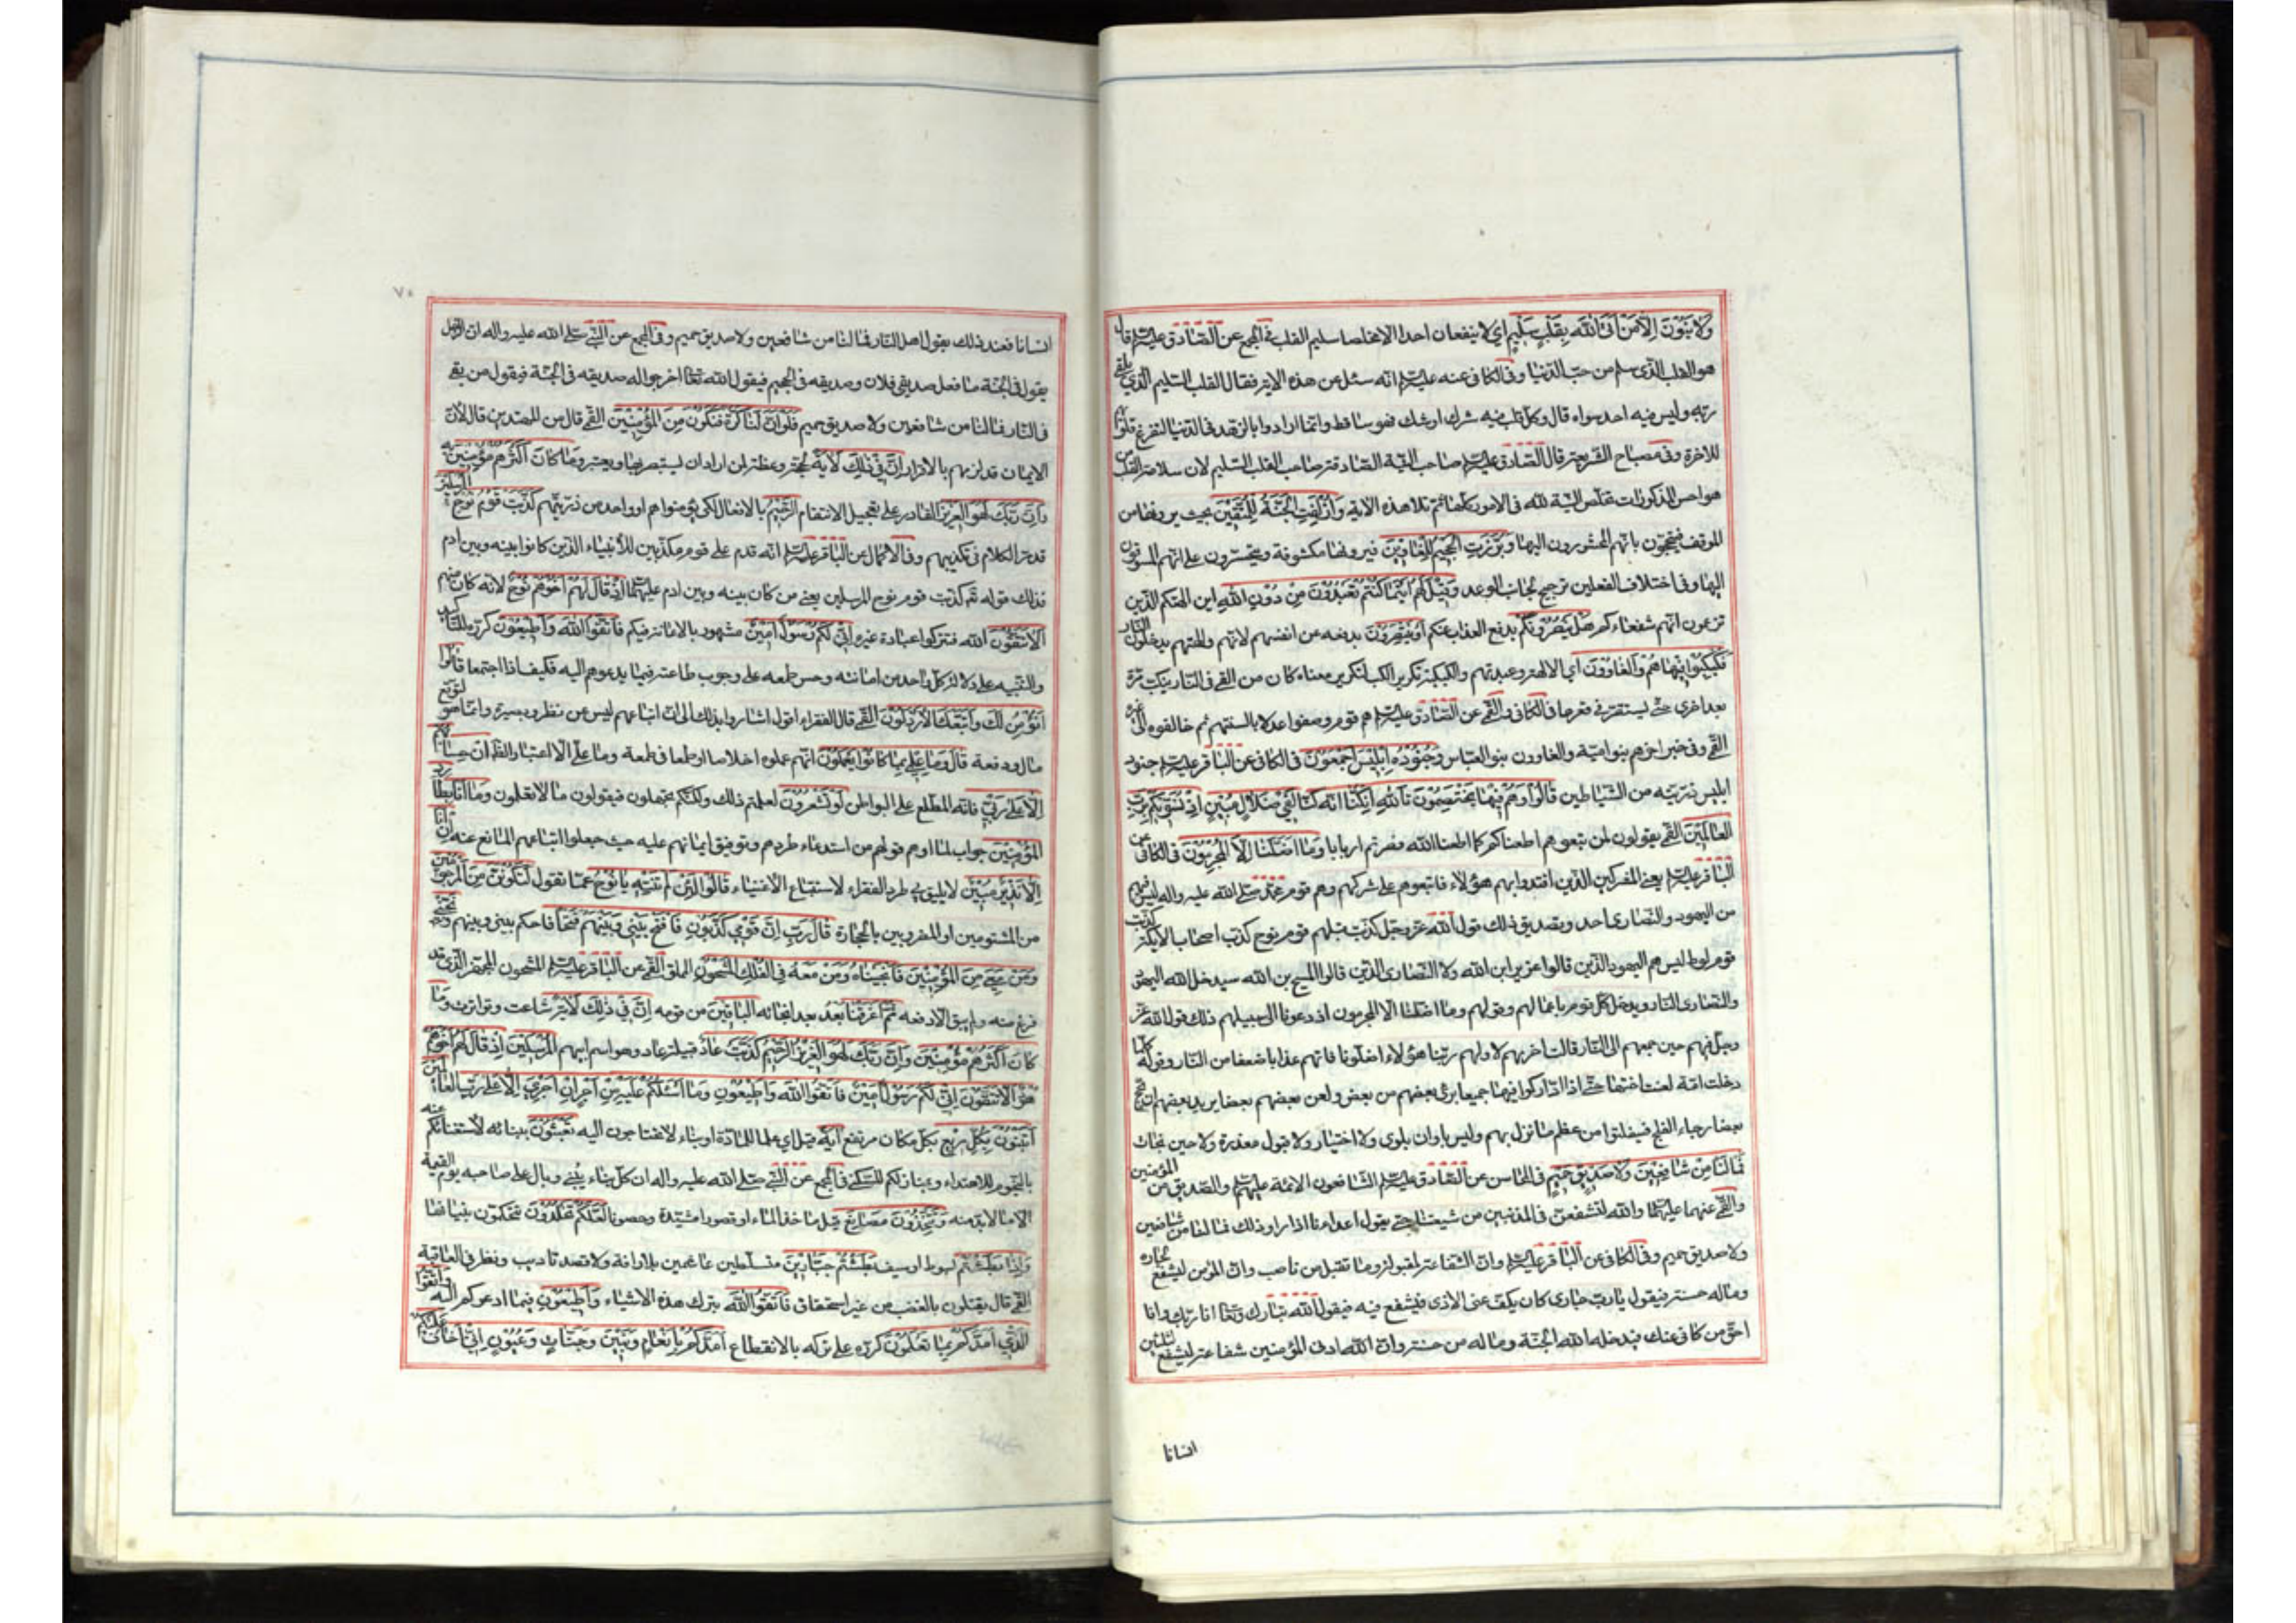 وَلَا بَنُونَ اِلَّا مَنْ اَتَى اللهَ بِقَلْبٍ سَلِيمٍ اي لا ينفعان احدا الا مخلصا سليم القلب في المجمع عن الصّادق عليه السّلم قال
هو القلب الّذى سلم من حبّ الدّنيا وفى الكافى عنه عليه السّلم انّه سئل عن هذه الاية فقال القلب السّليم الّذي يلقى
ربّه وليس فيه احد سواه قال وكلّ قلب فيه شرك او شك فهو ساقط وانّما ارادوا بالزّهد فى الدّنيا لتفرغ قلوبهم
للاخرة وفى مصباح الشّريعة قال الصّادق عليه السّلم صاحب النّيّة الصّادقة صاحب القلب السّليم لان سلامة القلب من
هواجس المذكورات تخلّص النّيّة لله فى الامور كلّها ثمّ تلا هذه الآية وَاُزْلِفَتِ الْجَنَّةُ لِلْمُتَّقِينَ بحيث يرونها من
الموقف فيتبجّحون بانّهم المحشورون اليها وَبُرِّزَتِ الْجَحِيمُ لِلْغَاوِينَ فيرونها مكشوفة ويتحسّرون على انّهم المسوقون
اليها وفى اختلاف الفعلين ترجيح لجانب الوعد وَقِيلَ لَهُمْ اَيْنَمَا كُنْتُمْ تَعْبُدُونَ مِنْ دُونِ اللهِ اين الهتكم الّذين
تزعمون انّهم شفعاءكم هَلْ يَنْصُرُونَكُمْ بدفع العذاب عنكم اَوْ يَنْتَصِرُونَ بدفعه عن انفسهم لانّهم والهتهم يدخلون النّار
فَكُبْكِبُوا فِيهَا هُمْ وَالْغَاوُونَ اي الالهة وعبدتهم والكبكبة تكرير الكب لتكرير معناه كان من القي فى النّار ينكب مرّة
بعد اخرى حتّى يستقرّ فى قعرها فى الكافى والقمّى عن الصّادق عليه السّلم هم قوم وصفوا عدلا بالسنتهم ثم خالفوه الى غيره
القمّى وفى خبر اخر هم بنو اميّة والغاوون بنو العبّاس وَجُنُودُ اِبْلِيسَ اَجْمَعُونَ فى الكافى عن الباقر عليه السّلم جنود
ابليس ذرّيّته من الشّياطين قَالُوا وَهُمْ فِيهَا يَخْتَصِمُونَ تَاللهِ اِنْ كُنَّا انّه كنّا لَفِي ضَلَالٍ مُبِينٍ اِذْ نُسَوِّيكُمْ بِرَبِّ
الْعَالَمِينَ القمّى يقولون لمن تبعوهم اطعناكم كما اطعنا الله فصرتم اربابا وَمَا اَضَلَّنَا اِلَّا الْمُجْرِمُونَ فى الكافى عن
الباقر عليه السّلم يعنى المشركين الّذين اقتدوا بهم هؤلاء فاتبعوهم على شركهم وهم قوم محمّد صلّى الله عليه واله ليس فيهم
من اليهود والنّصارى احد وتصديق ذلك قول الله عزّ وجلّ كذّبت قبلهم قوم نوح كذّب اصحاب الايكة كذّبت
قوم لوط ليس هم اليهود الّذين قالوا عزير ابن الله ولا النّصارى الّذين قالوا المسيح بن الله سيدخل الله اليهود
والنّصارى النّار ويدخل كلّ قوم باعمالهم وقولهم وما اضلّنا الّا المجرمون اذ دعونا الى سبيلهم ذلك قول الله عزّ
وجلّ فيهم حين جمعهم الى النّار قالت اخريهم لاوليهم ربّنا هؤلاء اضلّونا فاتهم عذابا ضعفا من النّار وقوله كلّما
دخلت امّة لعنت اختها حتّى اذا ادّاركوا فيها جميعا برئ بعضهم من بعض ولعن بعضهم بعضا يريد بعضهم ان يحج
بعضا رجاء الفلج فيفلتوا من عظم ما نزل بهم وليس باوان بلوى ولا اختبار ولا قبول معذرة ولا حين نجاة
فَمَا لَنَا مِنْ شَافِعِينَ وَلَا صَدِيقٍ حَمِيمٍ فى المحاسن عن الصّادق عليه السّلم الشّافعون الائمة عليهم السّلم والصّديق من المؤمنين
والقمّى عنهما عليهما السّلم والله لنشفعنّ فى المذنبين من شيعتنا حتّى يقول اعداءنا اذا راوا ذلك فما لنا من شافعين
ولا صديق حميم وفى الكافى عن الباقر عليه السّلم وانّ الشّفاعة لمقبولة وما تقبل من ناصب وانّ المؤمن ليشفع لجاره
وماله حسنة فيقول ياربّ جارى كان يكفّ عنى الاذى فيشفع فيه فيقول الله تبارك وتعالى انا ربّك وانا
احقّ من كافى عنك فيدخله الله الجنّة وماله من حسنة وانّ ادنى المؤمنين شفاعة ليشفع لثلثين
انسانا
٧٠
انسانا فعند ذلك يقول اهل النّار فما لنا من شافعين ولا صديق حميم وفى المجمع عن النّبىّ صلّى الله عليه واله انّ الرّجل
يقول فى الجنّة ما فعل صديقى فلان وصديقه فى الجحيم فيقول الله تعالى اخرجوا له صديقه فى الجنّة فيقول من بقى
فى النّار فما لنا من شافعين ولا صديق حميم فَلَوْ اَنَّ لَنَا كَرَّةً فَنَكُونَ مِنَ الْمُؤْمِنِينَ القمّى قال من المهتدين قال لأنّ
الايمان قد لزمهم بالاقرار اِنَّ فِي ذٰلِكَ لَآيَةً لحجّة وعظة لمن اراد ان يستبصر بها ويعتبر وَمَا كَانَ اَكْثَرُهُمْ مُؤْمِنِينَ به
وَاِنَّ رَبَّكَ لَهُوَ الْعَزِيزُ القادر على تعجيل الانتقام الرَّحِيمُ بالامهال لكى يؤمنوا هم او واحد من ذرّيّتهم كَذَّبَتْ قَوْمُ نُوحٍ الْمُرْسَلِينَ
قد مرّ الكلام فى تكذيبهم وفى الاكمال عن الباقر عليه السّلم انّه قدم على قوم مكذّبين للأنبياء الّذين كانوا بينه وبين ادم
فذلك قوله تعالى كذّبت قوم نوح المرسلين يعنى من كان بينه وبين ادم عليهما السّلم اِذْ قَالَ لَهُمْ اَخُوهُمْ نُوحٌ لانّه كان منهم
اَلَا تَتَّقُونَ الله فتتركوا عبادة غيره اِنِّي لَكُمْ رَسُولٌ اَمِينٌ مشهور بالامانة فيكم فَاتَّقُوا اللهَ وَاَطِيعُونِ كرّره للتّأكيد
والتّنبيه على دلالة كلّ واحد من امانته وحسن طمعه على وجوب طاعته فيما يدعوهم اليه فكيف اذا اجتمعا قَالُوا
اَنُؤْمِنُ لَكَ وَاتَّبَعَكَ الْاَرْذَلُونَ القمّى قال الفقراء اقول اشاروا بذلك الى انّ اتباعهم ليس عن نظر وبصيرة وانّما هو لتوقّع
مال ورفعة قَالَ وَمَا عِلْمِي بِمَا كَانُوا يَعْمَلُونَ انّهم عملوه اخلاصا او طمعا فى طعمة وما علىّ الّا اعتبار الظّاهر اِنْ حِسَابُهُمْ
اِلَّا عَلَى رَبِّي فانّه المطّلع على البواطن لَوْ تَشْعُرُونَ لعلمتم ذلك ولكنّكم تجهلون فيقولون ما لا تعلمون وَمَا اَنَا بِطَارِدِ
الْمُؤْمِنِينَ جواب لما اوهم قولهم من استدعاء طردهم وتوقيف ايمانهم عليه حيث جعلوا اتّباعهم المانع عنه اِنْ اَنَا
اِلَّا نَذِيرٌ مُبِينٌ لا يليق بى طرد الفقراء لاستتباع الأغنياء قَالُوا لَئِنْ لَمْ تَنْتَهِ يَا نُوحُ عمّا تقول لَتَكُونَنَّ مِنَ الْمَرْجُومِينَ
من المشتومين او المضروبين بالحجارة قَالَ رَبِّ اِنَّ قَوْمِي كَذَّبُونِ فَافْتَحْ بَيْنِي وَبَيْنَهُمْ فَتْحًا فاحكم بينى وبينهم وَنَجِّنِي
وَمَنْ مَعِيَ مِنَ الْمُؤْمِنِينَ فَاَنْجَيْنَاهُ وَمَنْ مَعَهُ فِي الْفُلْكِ الْمَشْحُونِ المملوّ القمّى عن الباقر عليه السّلم المشحون المجهّز الّذى قد
فرغ منه ولم يبق الّا دفعه ثُمَّ اَغْرَقْنَا بَعْدُ بعد انجائه الْبَاقِينَ من قومه اِنَّ فِي ذٰلِكَ لَآيَةً شاعت وتواترت وَمَا
كَانَ اَكْثَرُهُمْ مُؤْمِنِينَ وَاِنَّ رَبَّكَ لَهُوَ الْعَزِيزُ الرَّحِيمُ كَذَّبَتْ عَادٌ قبيلة عاد وهو اسم ابيهم الْمُرْسَلِينَ اِذْ قَالَ لَهُمْ اَخُوهُمْ
هُودٌ اَلَا تَتَّقُونَ اِنِّي لَكُمْ رَسُولٌ اَمِينٌ فَاتَّقُوا اللهَ وَاَطِيعُونِ وَمَا اَسْئَلُكُمْ عَلَيْهِ مِنْ اَجْرٍ اِنْ اَجْرِيَ اِلَّا عَلَى رَبِّ الْعَالَمِينَ
اَتَبْنُونَ بِكُلِّ رِيعٍ بكلّ مكان مرتفع آيَةً قيل اي علما للمارّة او بناء لا تحتاجون اليه تَعْبَثُونَ ببنائه لاستغنائكم عنه
بالنّجوم للاهتداء وبمنازلكم للسّكنى فى المجمع عن النّبىّ صلّى الله عليه واله ان كلّ بناء يبنى وبال على صاحبه يوم القيمة
الا ما لا بدّ منه وَتَتَّخِذُونَ مَصَانِعَ قيل مآخذ الماء او قصورا مشيّدة وحصونا لَعَلَّكُمْ تَخْلُدُونَ فتحكمون بنيانها
وَاِذَا بَطَشْتُمْ بسوط او سيف بَطَشْتُمْ جَبَّارِينَ متسلّطين غاشمين بلا رافة ولا قصد تاديب ونظر فى العاقبة
القمّى قال يقتلون بالغضب من غير استحقاق فَاتَّقُوا اللهَ بترك هذه الاشياء وَاَطِيعُونِ فيما ادعوكم اليه وَاتَّقُوا
الَّذِي اَمَدَّكُمْ بِمَا تَعْلَمُونَ كرّره على تركه بالانقطاع اَمَدَّكُمْ بِاَنْعَامٍ وَبَنِينَ وَجَنَّاتٍ وَعُيُونٍ اِنِّي اَخَافُ عَلَيْكُمْ